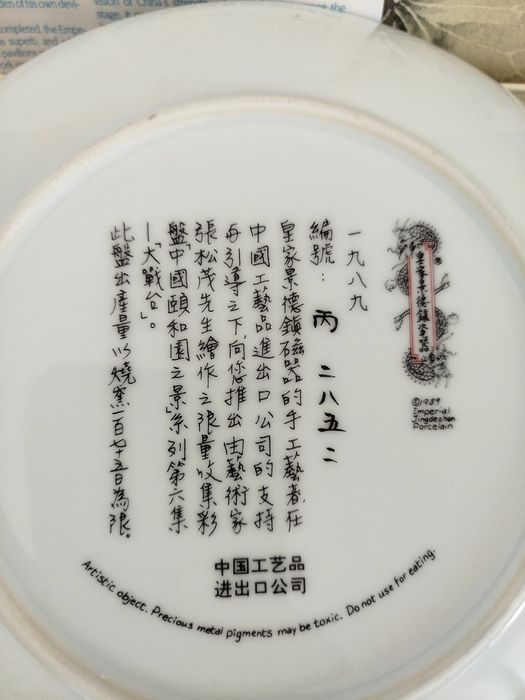 den of his own devi-
completed, the Empe-
s superb, and
pavilions
vision of China's
stage, it
the
皇家景德鎮瓷器
©1989
Imperial
Jingdezhen
Porcelain
一九八九
編號：丙 二八五二
皇家景德鎮磁器的手工藝者，在
中國工藝品進出口公司的支持
與引導之下，向您推出由藝術家
張松茂先生繪作之限量收集彩
盤“中國頤和園之景”系列第六集
—“大戰台”。
此盤出產量以燒窯一百七十五日為限。
中国工艺品
进出口公司
Artistic object. Precious metal pigments may be toxic. Do not use for eating.